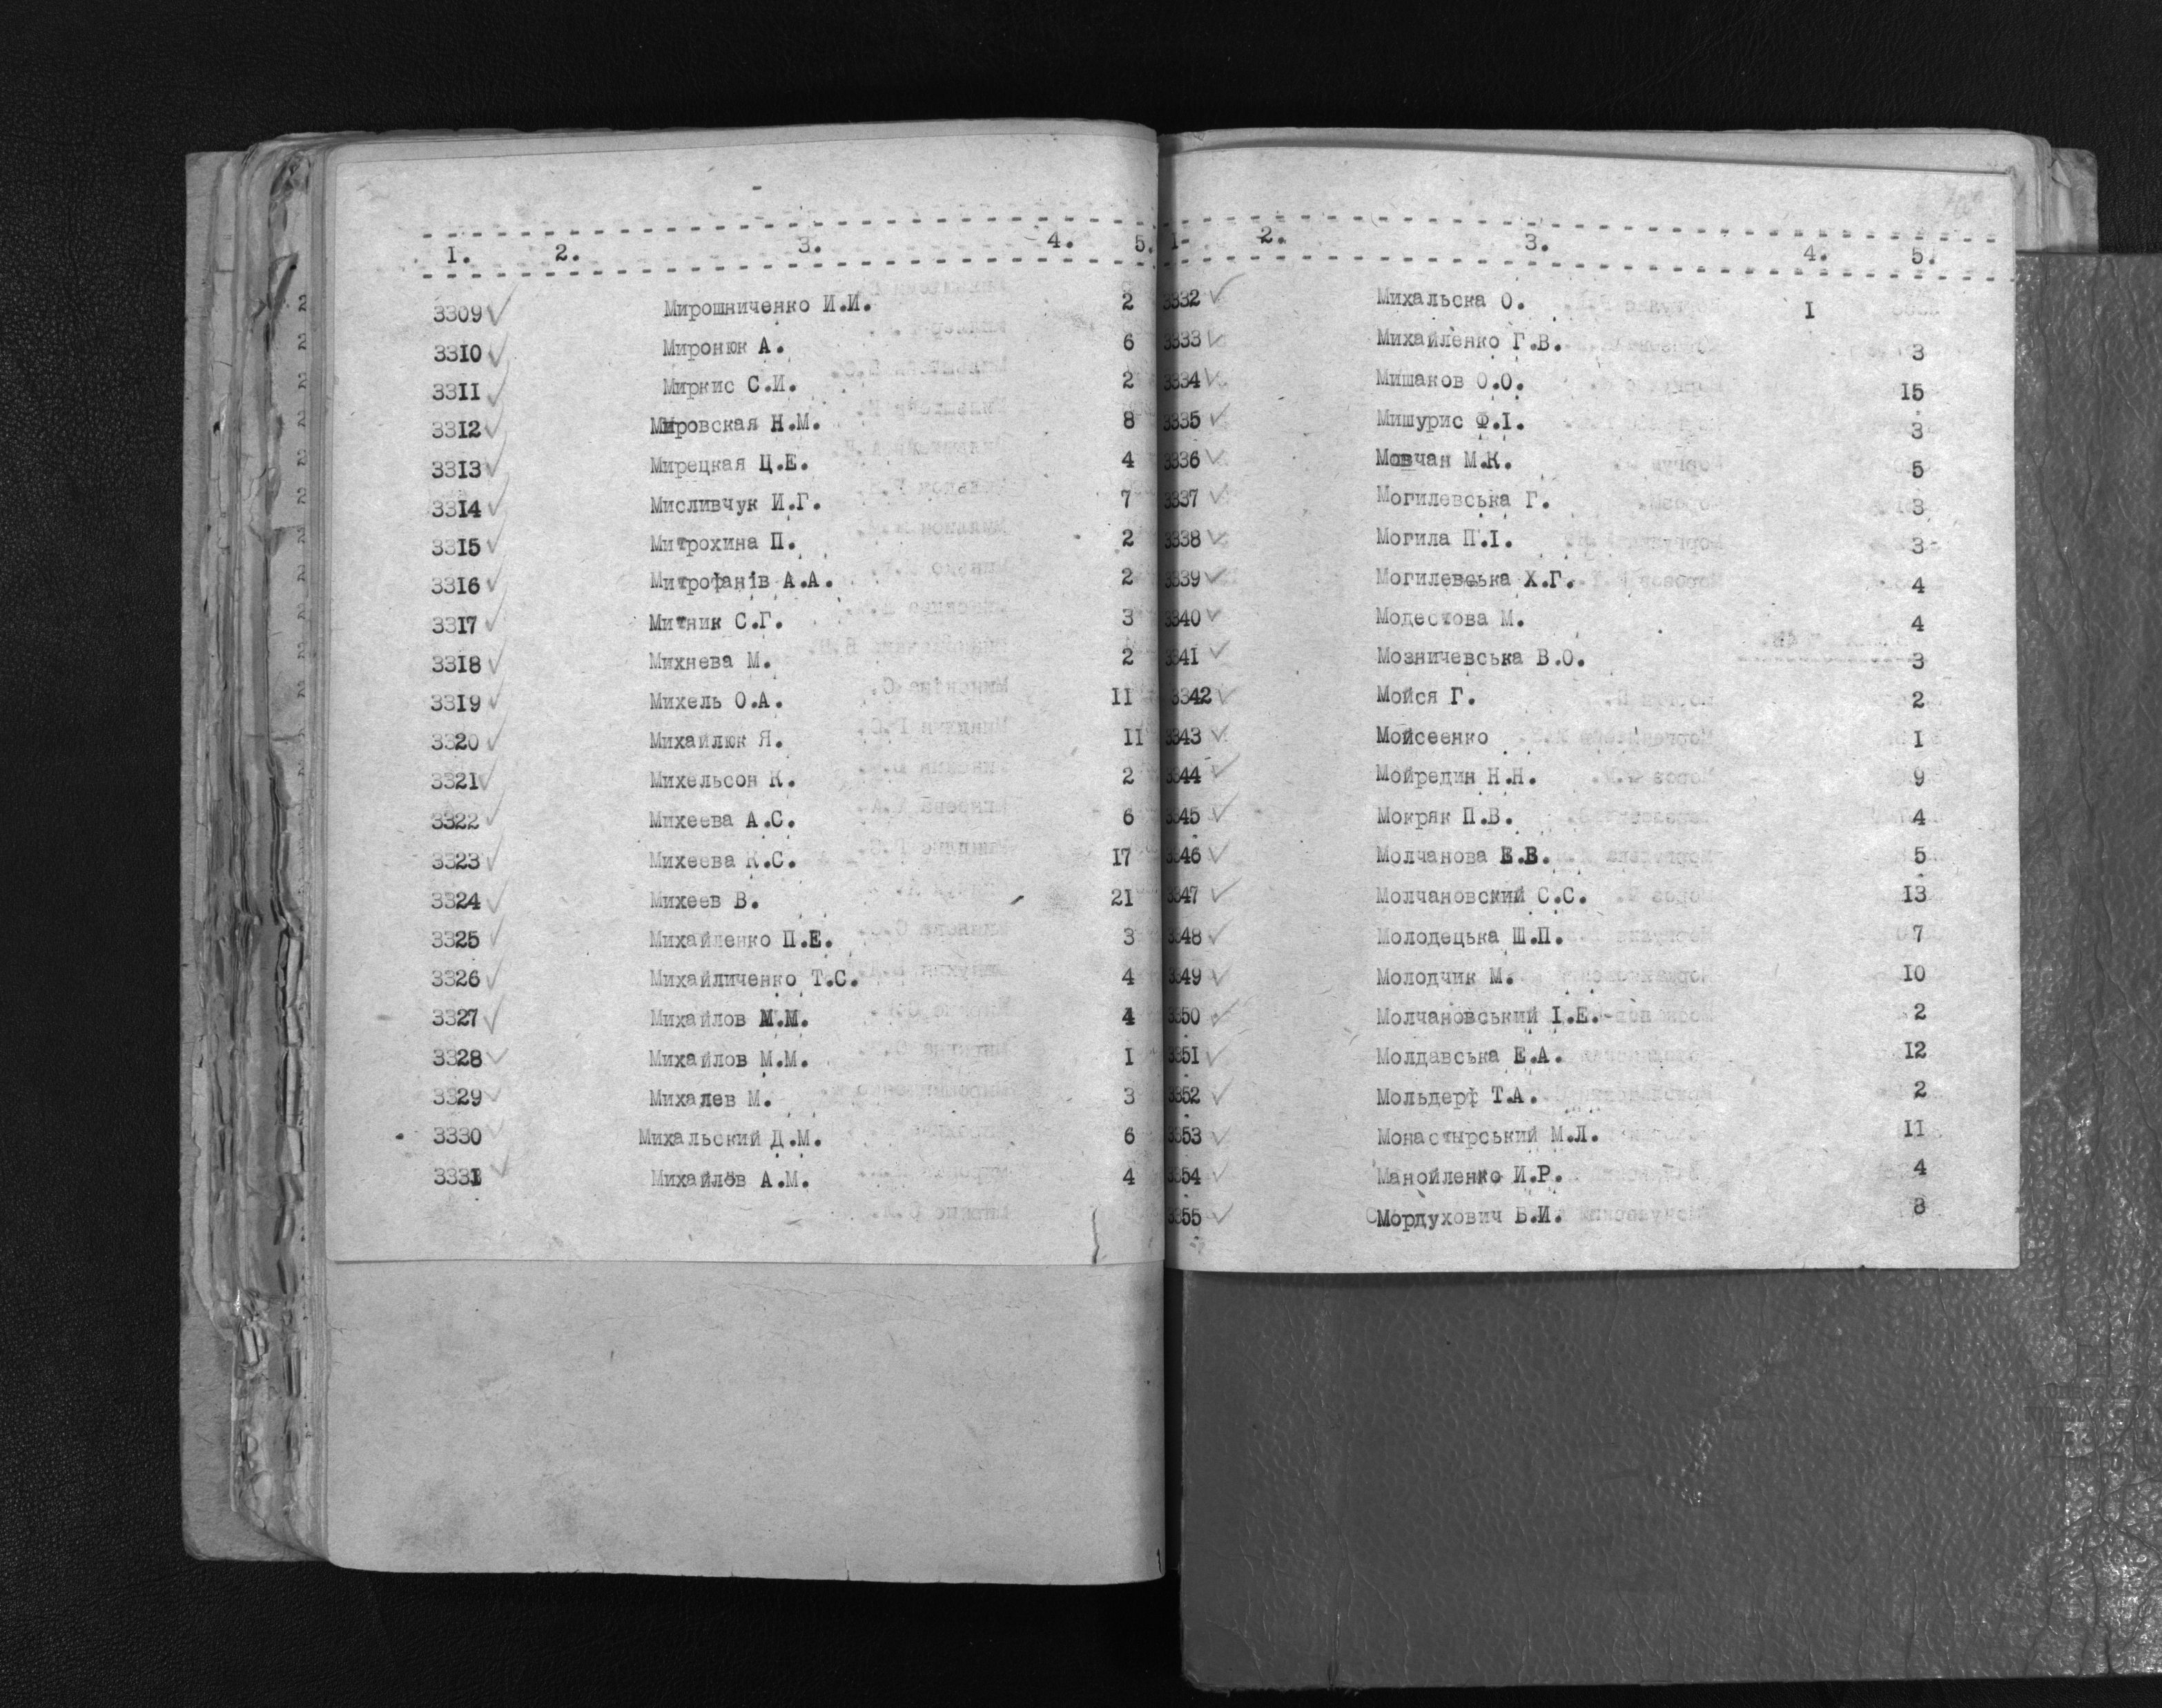 1. 2. 3. 4. 5.
3309 Мирошниченко И.И. 2
3310 Миронюк А. 6
3311 Миркис С.И. 2
3312 Мировская Н.М. 8
3313 Мирецкая Ц.Е. 4
3314 Мисливчук И.Г. 7
3315 Митрохина П. 2
3316 Митрофанів А.А. 2
3317 Митник С.Г. 3
3318 Михнева М. 2
3319 Михель О.А. 11
3320 Михайлюк Я. 11
3321 Михельсон К. 2
3322 Михеева А.С. 6
3323 Михеева К.С. 17
3324 Михеев В. 21
3325 Михайленко П.Е. 3
3326 Михайличенко Т.С. 4
3327 Михайлов М.М. 4
3328 Михайлов М.М. 1
3329 Михалев М. 3
3330 Михальский Д.М. 6
3331 Михайлов А.М. 4
1. 2. 3. 4. 5.
3332 Михальска О. 1
3333 Михайленко Г.В. 3
3334 Мишаков О.О. 15
3335 Мишурис Ф.І. 3
3336 Мовчан М.К. 5
3337 Могилевська Г. 3
3338 Могила П.І. 3
3339 Могилевська Х.Г. 4
3340 Модестова М. 4
3341 Мозничевська В.О. 3
3342 Мойся Г. 2
3343 Мойсеенко 1
3344 Мойредин Н.Н. 9
3345 Мокряк П.В. 4
3346 Молчанова Е.В. 5
3347 Молчановский С.С. 13
3348 Молодецька Ш.П. 7
3349 Молодчик М. 10
3350 Молчановський І.Е. 2
3351 Молдавська Е.А. 12
3352 Мольдерф Т.А. 2
3353 Монастырський М.Л. 11
3354 Манойленко И.Р. 4
3355 Мордухович Б.И. 8